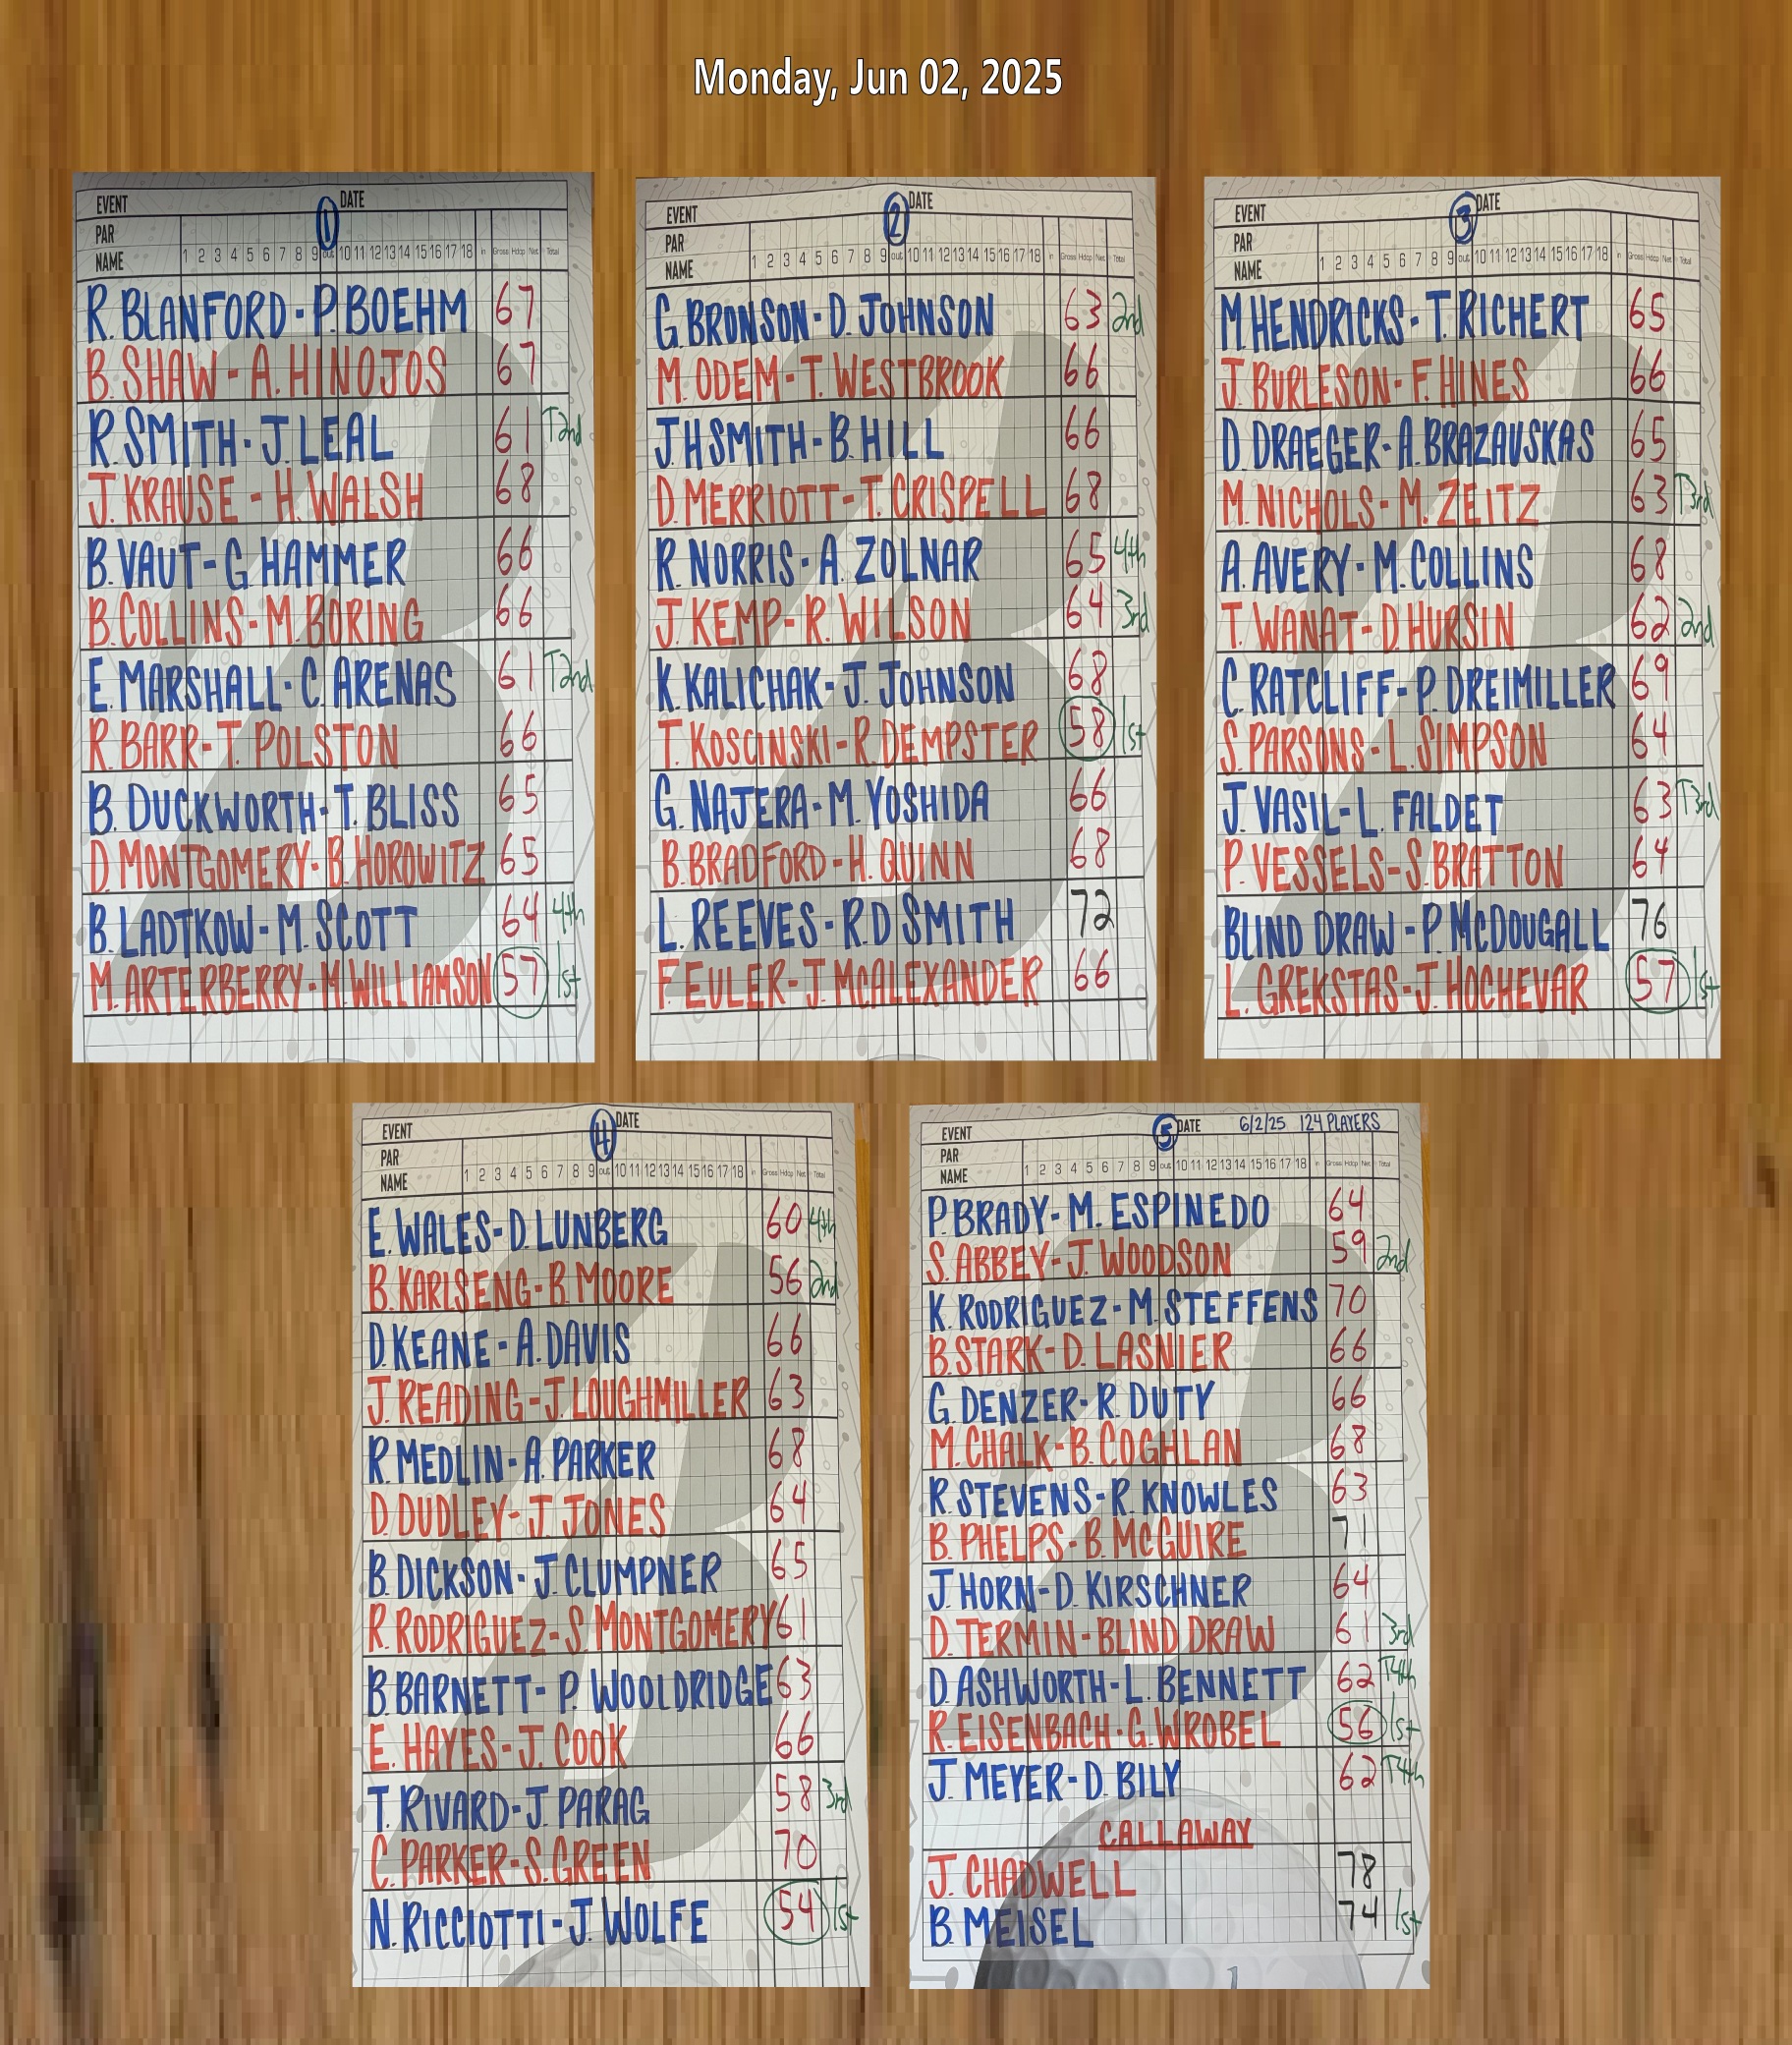 Monday, Jun 02, 2025
EVENT 1 DATE
PAR
NAME 1 2 3 4 5 6 7 8 9 out 10 11 12 13 14 15 16 17 18 in Gross Hdcp Net Total
R. BLANFORD - P. BOEHM 67
B. SHAW - A. HINOJOS 67
R. SMITH - J. LEAL 61 T2nd
J. KRAUSE - H. WALSH 68
B. VAUT - G HAMMER 66
B. COLLINS - M. BORING 66
E. MARSHALL - C. ARENAS 61 T2nd
R. BARR - T. POLSTON 66
B. DUCKWORTH - T. BLISS 65
D. MONTGOMERY - B. HOROWITZ 65
B. LADTKOW - M. SCOTT 64 4th
M. ARTERBERRY - M. WILLIAMSON 57 1st
EVENT 2 DATE
PAR
NAME 1 2 3 4 5 6 7 8 9 out 10 11 12 13 14 15 16 17 18 in Gross Hdcp Net Total
G. BRONSON - D. JOHNSON 63 2nd
M. ODEM - T. WESTBROOK 66
J.H SMITH - B. HILL 66
D. MERRIOTT - T. CRISPELL 68
R. NORRIS - A. ZOLNAR 65 4th
J. KEMP - R. WILSON 64 3rd
K. KALICHAK - J. JOHNSON 68
T. KOSCINSKI - R. DEMPSTER 58 1st
G. NAJERA - M. YOSHIDA 66
B. BRADFORD - H. QUINN 68
L. REEVES - R.D SMITH 72
F. EULER - J. MCALEXANDER 66
EVENT 3 DATE
PAR
NAME 1 2 3 4 5 6 7 8 9 out 10 11 12 13 14 15 16 17 18 in Gross Hdcp Net Total
M. HENDRICKS - T. RICHERT 65
J. BURLESON - F. HINES 66
D. DRAEGER - A. BRAZAUSKAS 65
M. NICHOLS - M. ZEITZ 63 T3rd
A. AVERY - M. COLLINS 68
T. WANAT - D HURSIN 62 2nd
C. RATCLIFF - P. DREIMILLER 69
S. PARSONS - L. SIMPSON 64
J. VASIL - L. FALDET 63 T3rd
P. VESSELS - S. BRATTON 64
BLIND DRAW - P. MCDOUGALL 76
L. GREKSTAS - J. HOCHEVAR 57 1st
EVENT 4 DATE
PAR
NAME 1 2 3 4 5 6 7 8 9 out 10 11 12 13 14 15 16 17 18 in Gross Hdcp Net Total
E. WALES - D. LUNBERG 60 4th
B. KARLSENG - B. MOORE 56 2nd
D. KEANE - A. DAVIS 66
J. READING - J. LOUGHMILLER 63
R. MEDLIN - A. PARKER 68
D. DUDLEY - J. JONES 64
B. DICKSON - J. CLUMPNER 65
R. RODRIGUEZ - S. MONTGOMERY 61
B. BARNETT - P. WOOLDRIDGE 63
E. HAYES - J. COOK 66
T. RIVARD - J. PARAG 58 3rd
C. PARKER - S. GREEN 70
N. RICCIOTTI - J. WOLFE 54 1st
EVENT 5 DATE 6/2/25 124 PLAYERS
PAR
NAME 1 2 3 4 5 6 7 8 9 out 10 11 12 13 14 15 16 17 18 in Gross Hdcp Net Total
P. BRADY - M. ESPINEDO 64
S. ABBEY - J. WOODSON 59 2nd
K. RODRIGUEZ - M. STEFFENS 70
B. STARK - D. LASNIER 66
G. DENZER - R. DUTY 66
M. CHALK - B. COGHLAN 68
R. STEVENS - R. KNOWLES 63
B. PHELPS - B. MCGUIRE 71
J. HORN - D. KIRSCHNER 64
D. TERMIN - BLIND DRAW 61 3rd
D. ASHWORTH - L. BENNETT 62 T4th
R. EISENBACH - G. WROBEL 56 1st
J. MEYER - D. BILY 62 T4th
CALLAWAY
J. CHADWELL 78
B. MEISEL 74 1st